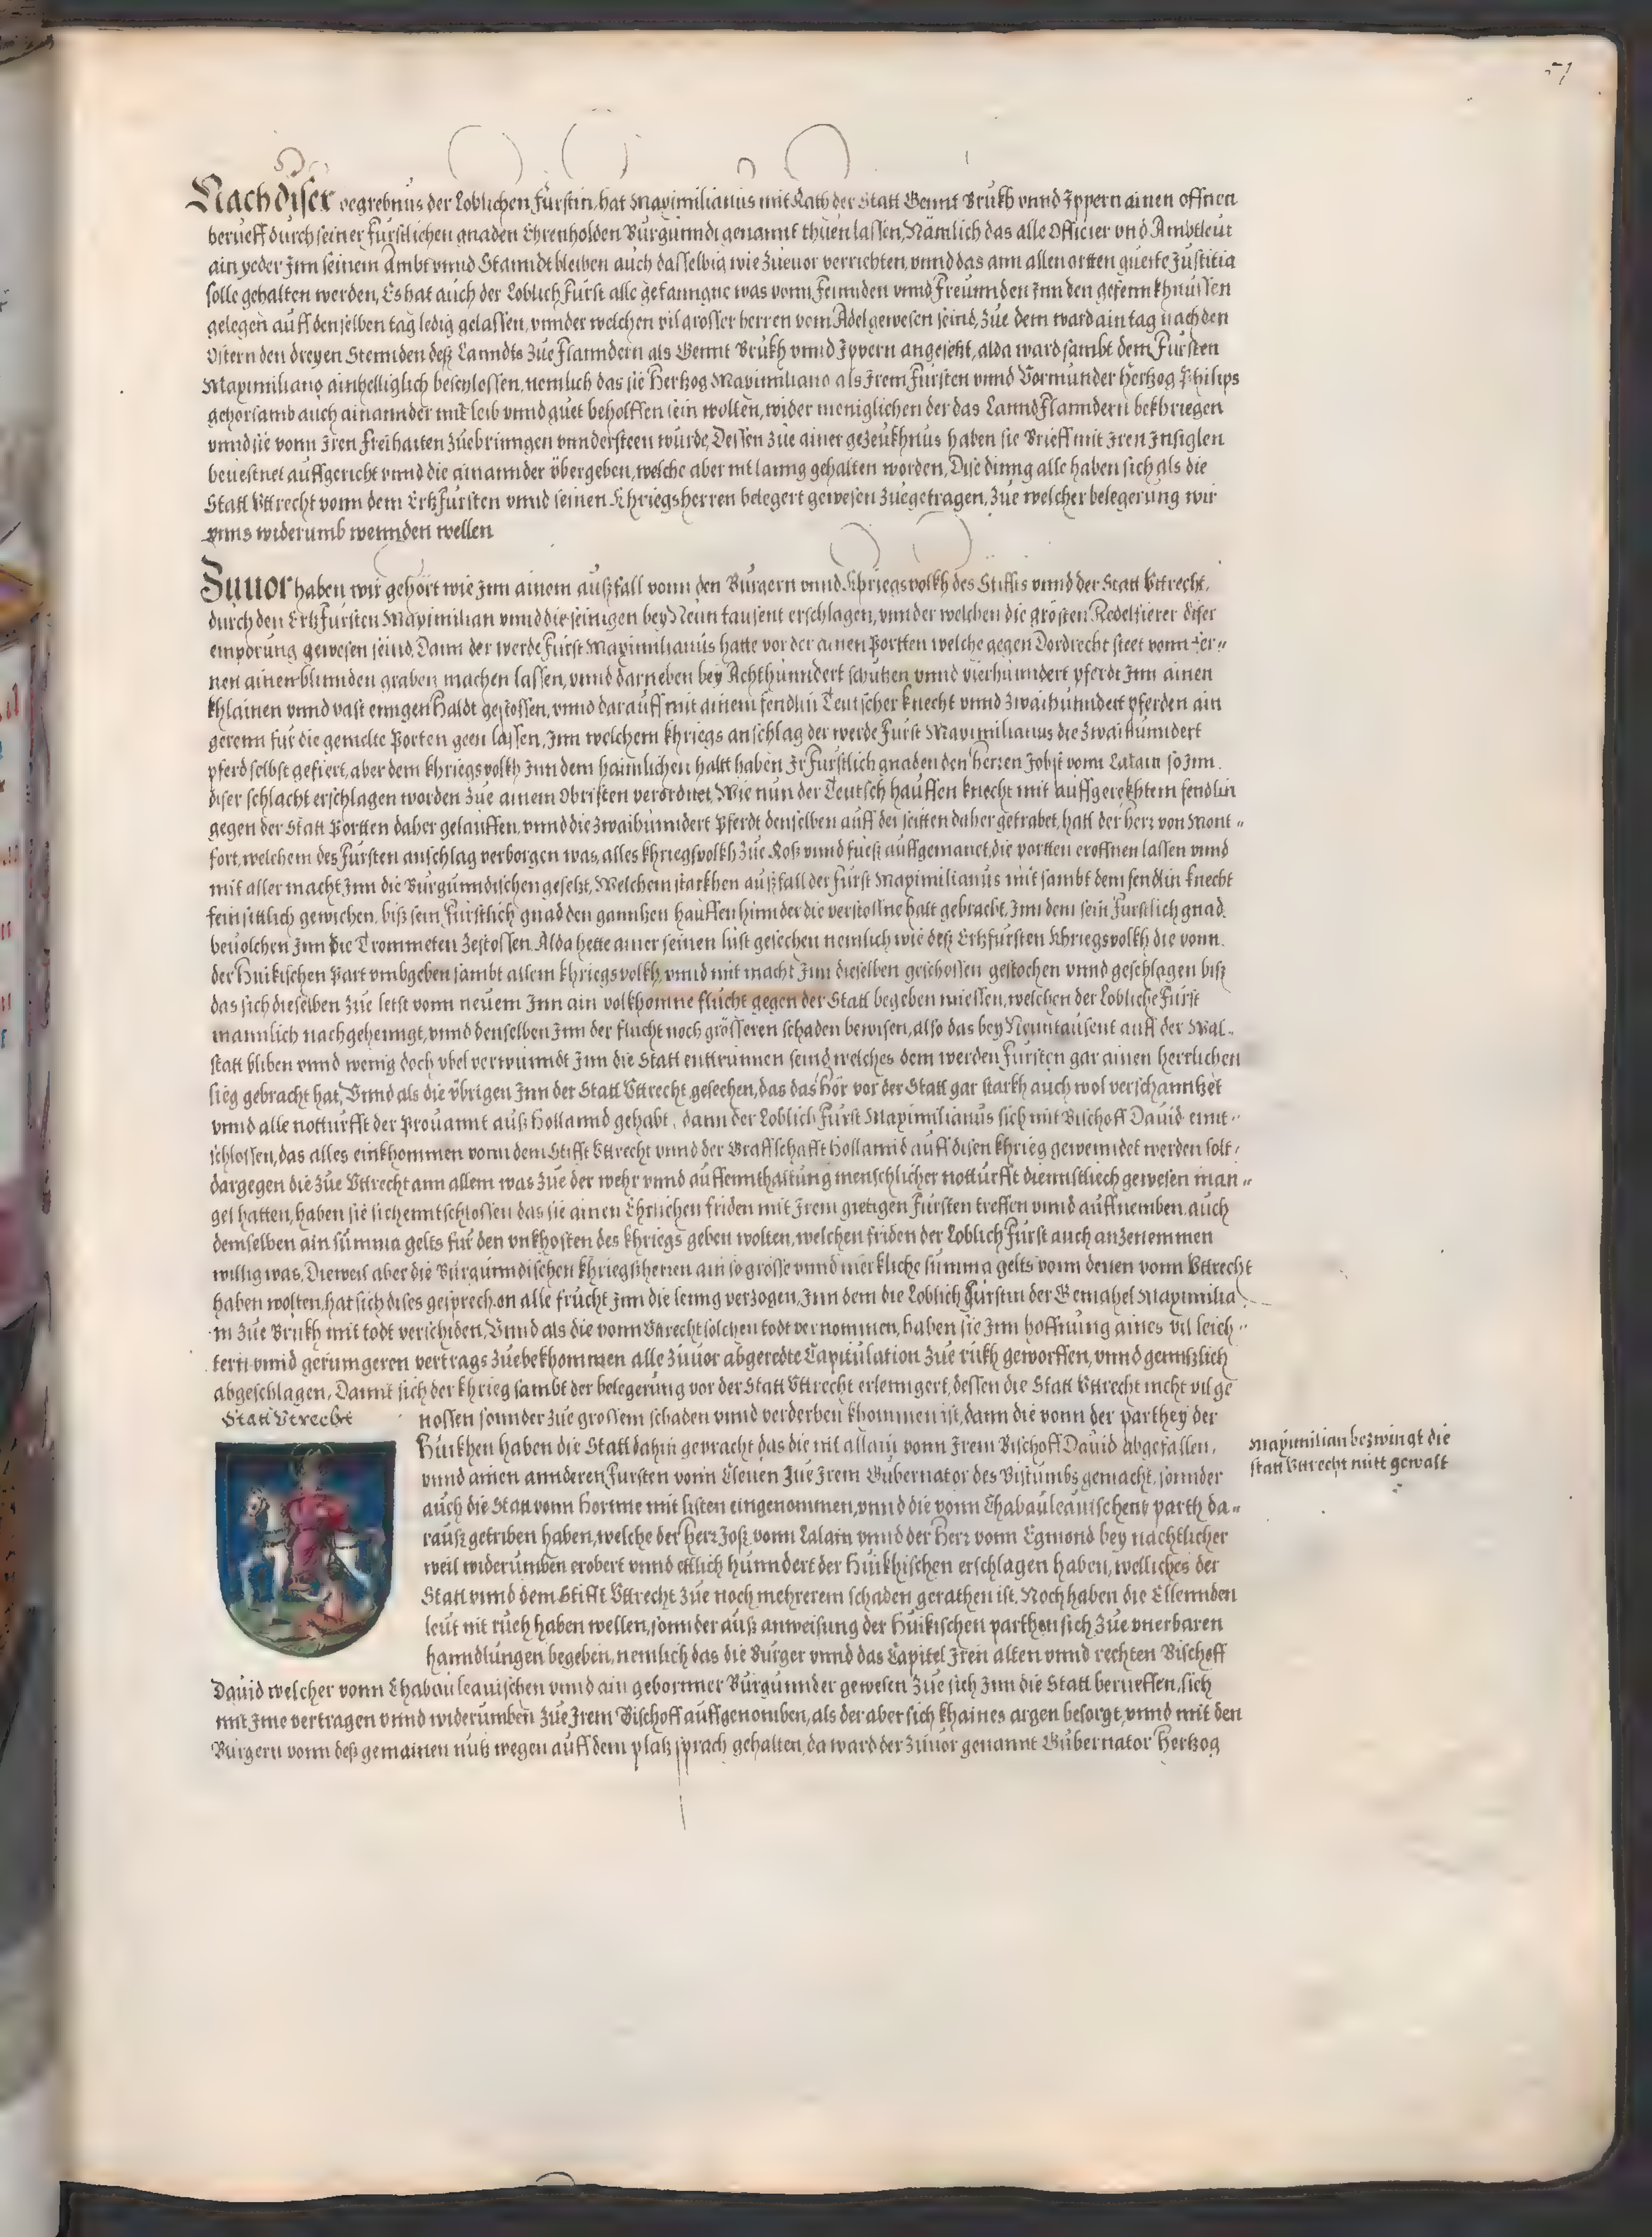 51
Nach diser begrebnus der Loblichen Fürstin, hat Maximilianus mit Rath der Statt Gennt Brukh vnnd Ippern ainen offnen
berueff durch seiner Fürstlichen gnaden Ehrenholden Burgunndi genannt thuen lassen, Nämlich das alle Officier vnd Ambtleut
ain yeder Inn seinem Ambt vnnd Stanndt bleiben auch dasselbig wie zueuor verrichten, vnnd das ann allen ortten guette Justitia
solle gehalten werden, Es hat auch der Loblich Fürst alle gefanngne was vonn Feinnden vnnd Freünnden Inn den gefennkhnussen
gelegen auff denselben tag ledig gelassen, vnnder welchen vil grosser herren vom Adel gewesen seind, Zue dem ward ain tag nach den
Ostern den dreyen Stennden deß Lanndts zue Flanndern als Gennt Brukh vnnd Ippern angesetzt, alda ward sambt dem Fürsten
Maximiliano ainhelliglich beschlossen, nemlich das sie Hertzog Maximiliano als Irem Fürsten vnnd Vormunder Hertzog Philips
gehorsamb auch ainannder mit leib vnnd guet beholffen sein wolten, wider meniglichen der das Lannd Flanndern bekhriegen
vnnd sie vonn Iren Freihaiten zuebringen vnndersteen wurde, Dessen zue ainer gezeukhnus haben sie Brieff mit Iren Insiglen
beuestnet auffgericht vnnd die ainannder übergeben, welche aber nit lanng gehalten worden, Dise dinng alle haben sich als die
Statt Vttrecht vonn dem Ertzfürsten vnnd seinen Khriegsherren belegert gewesen zuegetragen, zue welcher belegerung wir
vnns widerumb wennden wellen
Zuuor haben wir gehört wie Inn ainem außfall vonn den Burgern vnnd Khriegsvolkh des Stiffts vnnd der Statt Vttrecht,
durch den Ertzfürsten Maximilian vnnd die seinigen bey Neün tausent erschlagen, vnnder welchen die grösten Redelfierer diser
empörung gewesen seind, Dann der werde Fürst Maximilianus hatte vor der ainen Portten welche gegen Dordrecht steet vonn fer„
nen ainen blinnden graben machen lassen, vnnd darneben bey Achthunndert schützen vnnd vierhunndert pferdt Inn ainen
khlainen vnnd vast enngen Haldt gestossen, vnnd darauff mit ainem fendlin Teutscher knecht vnnd zwaihunndert pferden ain
gerenn für die gemelte Porten geen lassen, Inn welchem khriegs anschlag der werde Fürst Maximilianus die zwaihunndert
pferd selbst gefiert, aber dem khriegsvolkh Inn dem haimlichen haltt haben Ir Fürstlich gnaden den herren Jobst vonn Lalain so Inn
diser schlacht erschlagen worden zue ainem Obristen verordnet, Wie nun der Teutsch hauffen knecht mit auffgerekhtem fendlin
gegen der Statt Portten daher gelauffen, vnnd die zwaihunndert Pferdt denselben auff der seitten daher getrabet, hatt der herr von Mont„
fort, welchem des Fürsten anschlag verborgen was, alles khriegsvolkh zue Roß vnnd fueß auffgemanet, die portten eroffnen lassen vnnd
mit aller macht Inn die Burgunndischen gesetzt, Welchem starkhen außfall der Fürst Maximilianus mit sambt dem fendlin knecht
fein sittlich gewichen, biß sein Fürstlich gnad den ganntzen hauffen hinnder die verstossne halt gebracht, Inn dem sein Fürstlich gnad
beuolchen Inn die Trommeten zestossen, Alda hette ainer seinen lust gesechen nemlich wie deß Ertzfürsten Khriegsvolkh die vonn
der Huikischen Part vmbgeben sambt allem khriegsvolkh, vnnd mit macht Inn dieselben geschossen gestochen vnnd geschlagen biß
das sich dieselben zue letst vonn neuem Inn ain volkhomne flucht gegen der Statt begeben miessen, welchen der Lobliche Fürst
mannlich nachgehenngt, vnnd denselben Inn der flucht noch grösseren schaden bewisen, also das bey Neuntausent auff der Wal„
statt bliben vnnd wenig doch vbel verwunndt Inn die Statt enttrunnen seind, welches dem werden Fürsten gar ainen herrlichen
sieg gebracht hat, Vnnd als die übrigen Inn der Statt Vttrecht gesechen, das das hör vor der Statt gar starkh auch wol verschanntzet
vnnd alle notturfft der Prouannt auß Hollannd gehabt, dann der Loblich Fürst Maximilianus sich mit Bischoff Dauid ennt„
schlossen, das alles einkhommen vonn dem Stifft Vttrecht vnnd der Graffschafft Hollannd auff disen khrieg gewenndet werden solt,
dargegen die zue Vttrecht ann allem was zue der wehr vnnd auffennthaltung menschlicher notturfft diennstliech gewesen man„
gel hatten, haben sie sich enntschlossen das sie ainen Ehrlichen friden mit Irem gietigen Fürsten treffen vnnd auffnemben, auch
demselben ain summa gelts für den vnkhosten des khriegs geben wolten, welchen friden der Loblich Fürst auch anzenemmen
willig was, Dieweil aber die Burgunndischen khriegßherren ain so grosse vnnd merkliche summa gelts vonn denen vonn Vttrecht
haben wolten, hat sich dises gesprech on alle frucht Inn die lenng verzogen, Inn dem die Loblich Fürstin der Gemahel Maximilia„
ni zue Brukh mit todt verschiden, Vnnd als die vonn Vttrecht solchen todt vernommen, haben sie Inn hoffnung aines vil leich„
tern vnnd geringeren vertrags zuebekhommen alle zuuor abgeredte Capitulation zue rukh geworffen, vnnd genntzlich
abgeschlagen, Damit sich der khrieg sambt der belegerung vor der Statt Vttrecht erlenngert, dessen die Statt Vttrecht nicht vil ge
Statt Vtrecht
nossen sonnder zue grossem schaden vnnd verderben khommen ist, dann die vonn der parthey der
Huikhen haben die Statt dahin gepracht das die nit allain vonn Irem Bischoff Dauid abgefallen,
vnnd ainen annderen Fursten vonn Cleuen zue Irem Gubernator des Bistumbs gemacht, sonnder
auch die Statt vonn Hornne mit listen eingenommen, vnnd die vonn Chabauleauischenn parth da„
rauß getriben haben, welche der Herr Joß vonn Lalain vnnd der Herr vonn Egmond bey nachtlicher
weil widerumben erobert vnnd ettlich hunndert der Huikhischen erschlagen haben, welliches der
Statt vnnd dem Stifft Vttrecht zue noch mehrerem schaden gerathen ist, Noch haben die Ellennden
leut nit rueh haben wellen, sonnder auß anweisung der Huikischen parthen sich zue vnerbaren
hanndlungen begeben, nemlich das die Burger vnnd das Capitel Iren alten vnnd rechten Bischoff
Dauid welcher vonn Chabauleauischen vnnd ain gebornner Burgunnder gewesen zue sich Inn die Statt berueffen, sich
mit Ime vertragen vnnd widerumben zue Irem Bischoff auffgenomben, als der aber sich khaines argen besorgt, vnnd mit den
Burgern vonn deß gemainen nutz wegen auff dem platz sprach gehalten, da ward der zuuor genannt Gubernator Hertzog
Maximilian bezwingt die
statt Vttrecht mitt gewalt